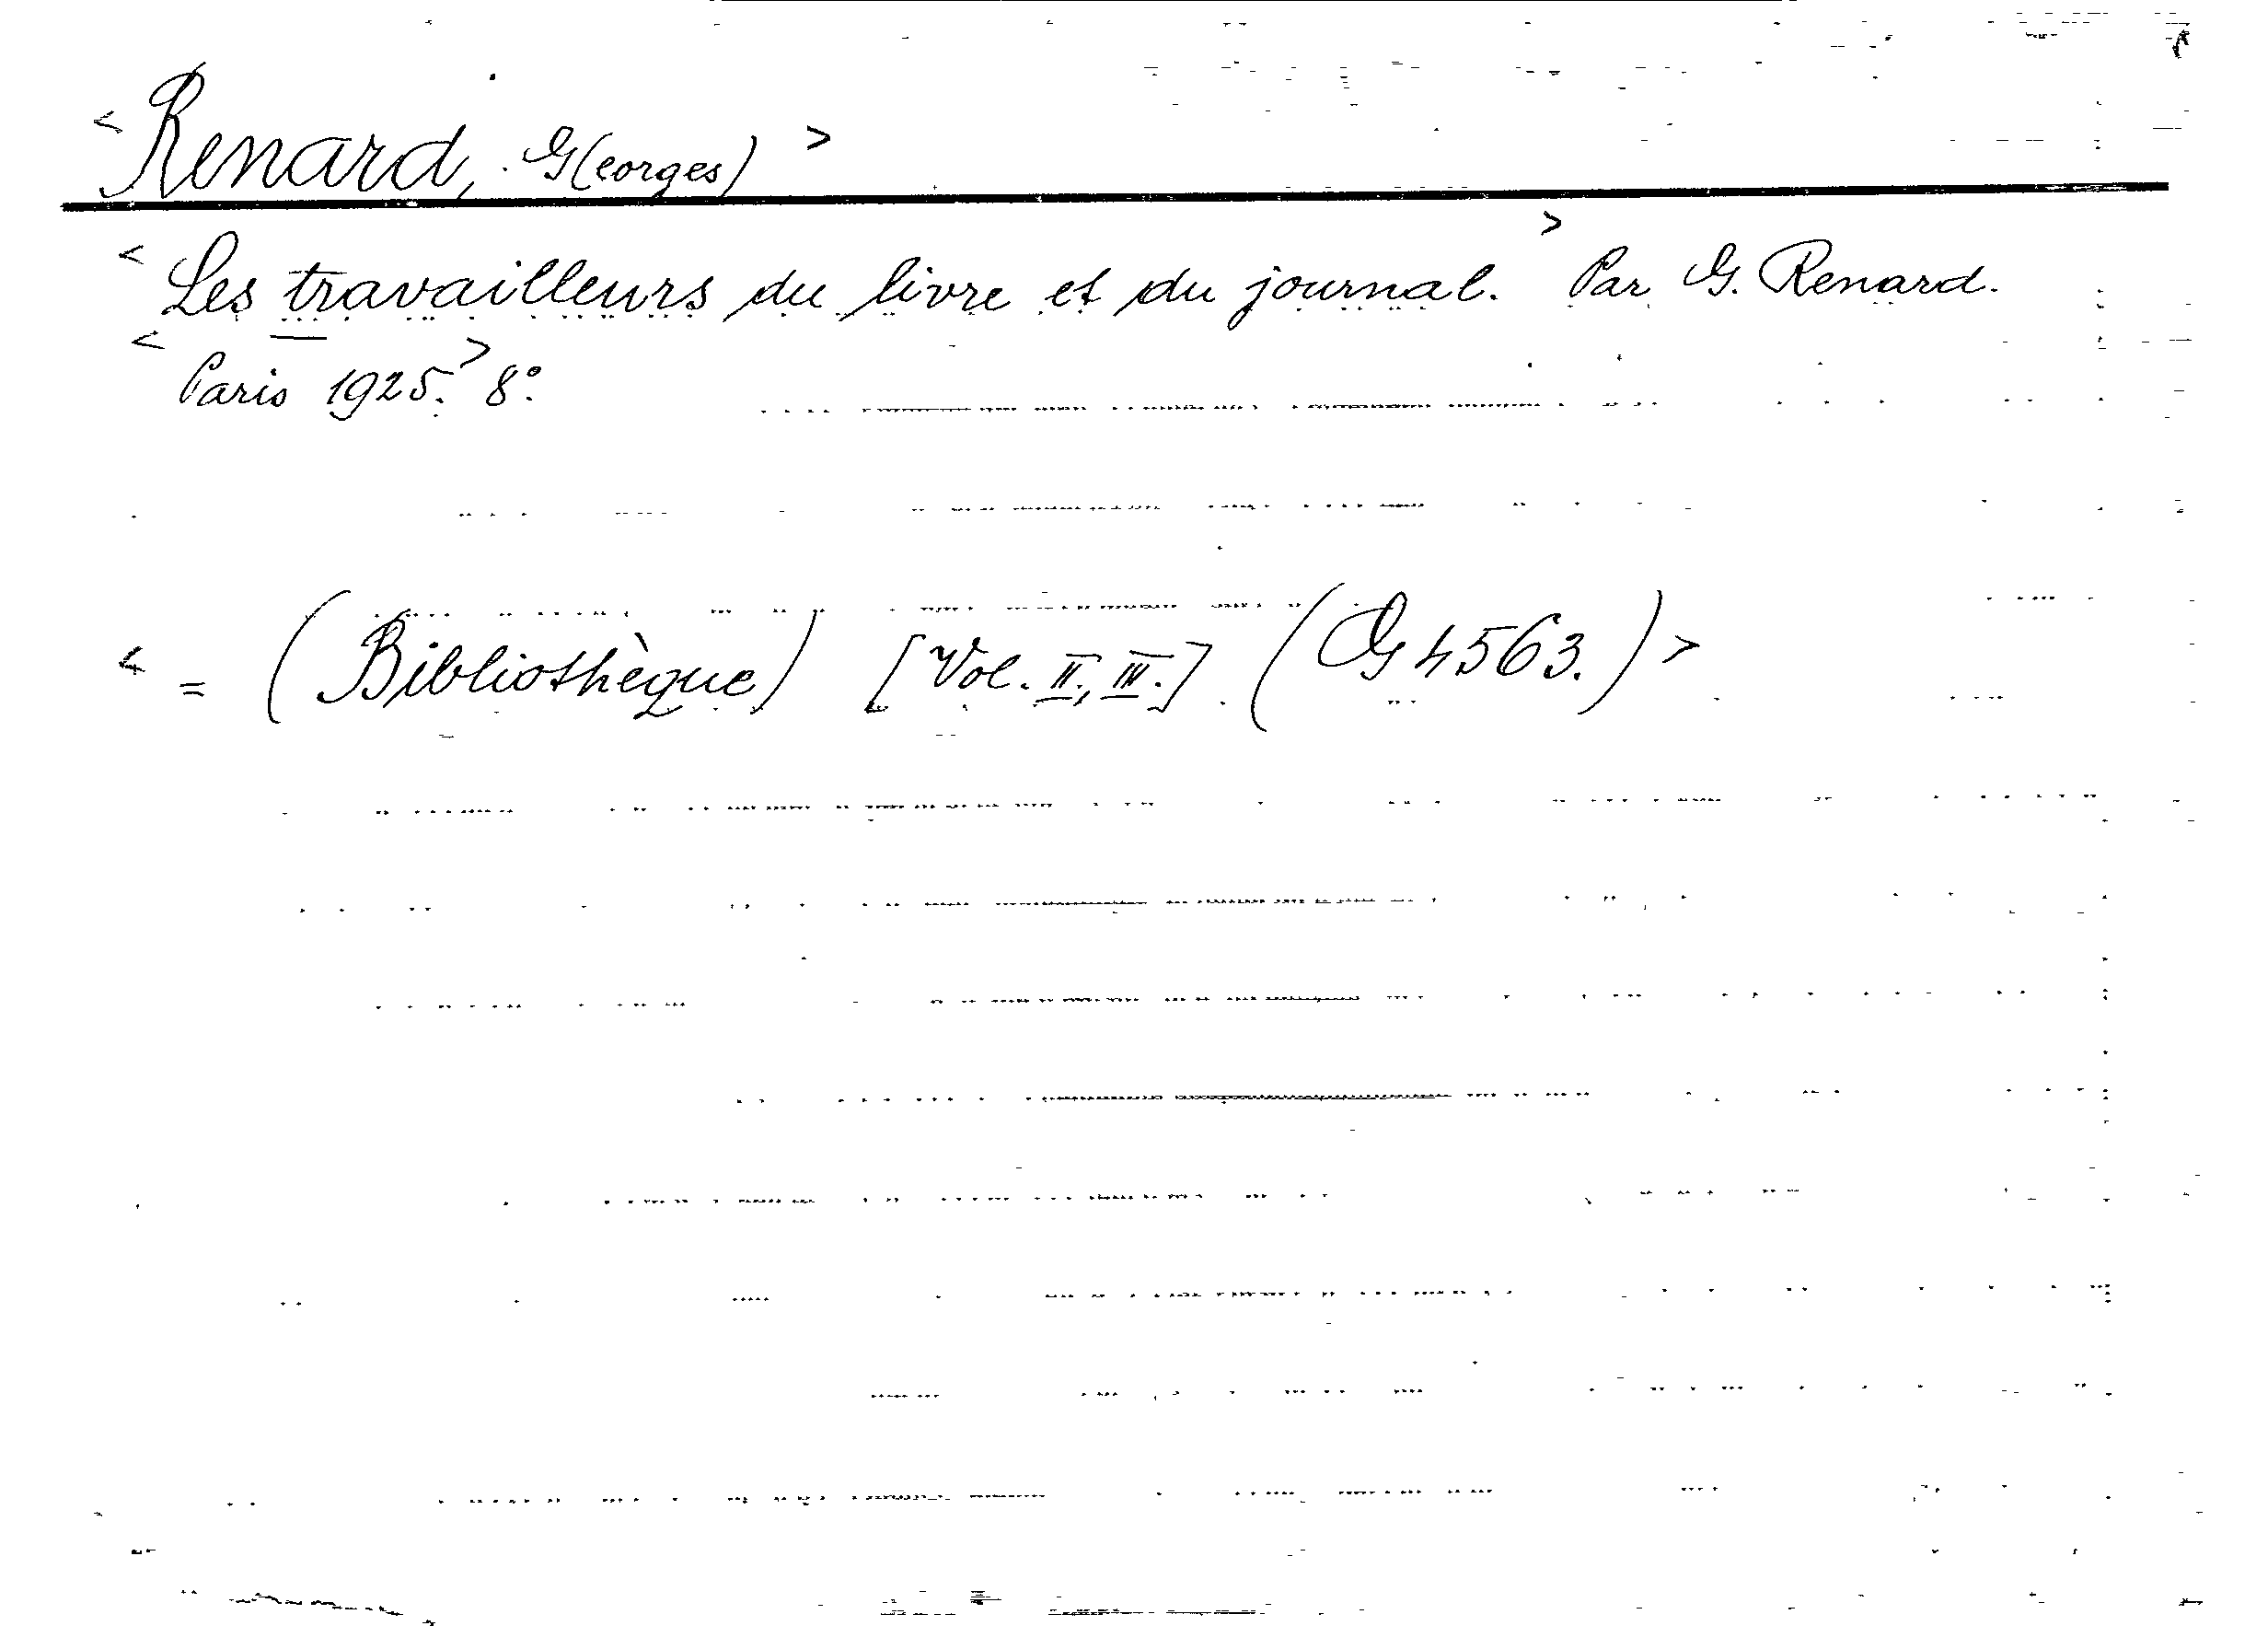 < Renard, G(eorges) >
< Les travailleurs du livre et du journal. > Par G. Renard.
< Paris 1925. > 8°.
< = (Bibliothèque) [Vol. II, III.] (G 4563.) >